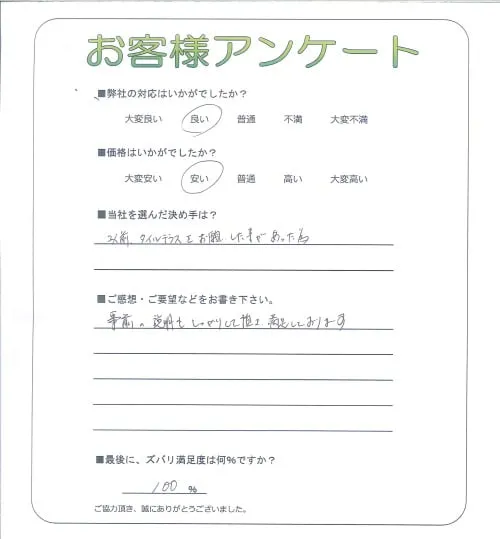 お客様アンケート
■弊社の対応はいかがでしたか?
大変良い 良い 普通 不満 大変不満
■価格はいかがでしたか?
大変安い 安い 普通 高い 大変高い
■当社を選んだ決め手は?
以前、タイルテラスをお願いした事があった為
■ご感想・ご要望などをお書き下さい。
事前の説明もしっかりして頂き満足しております
■最後に、ズバリ満足度は何%ですか?
100 %
ご協力頂き、誠にありがとうございました。